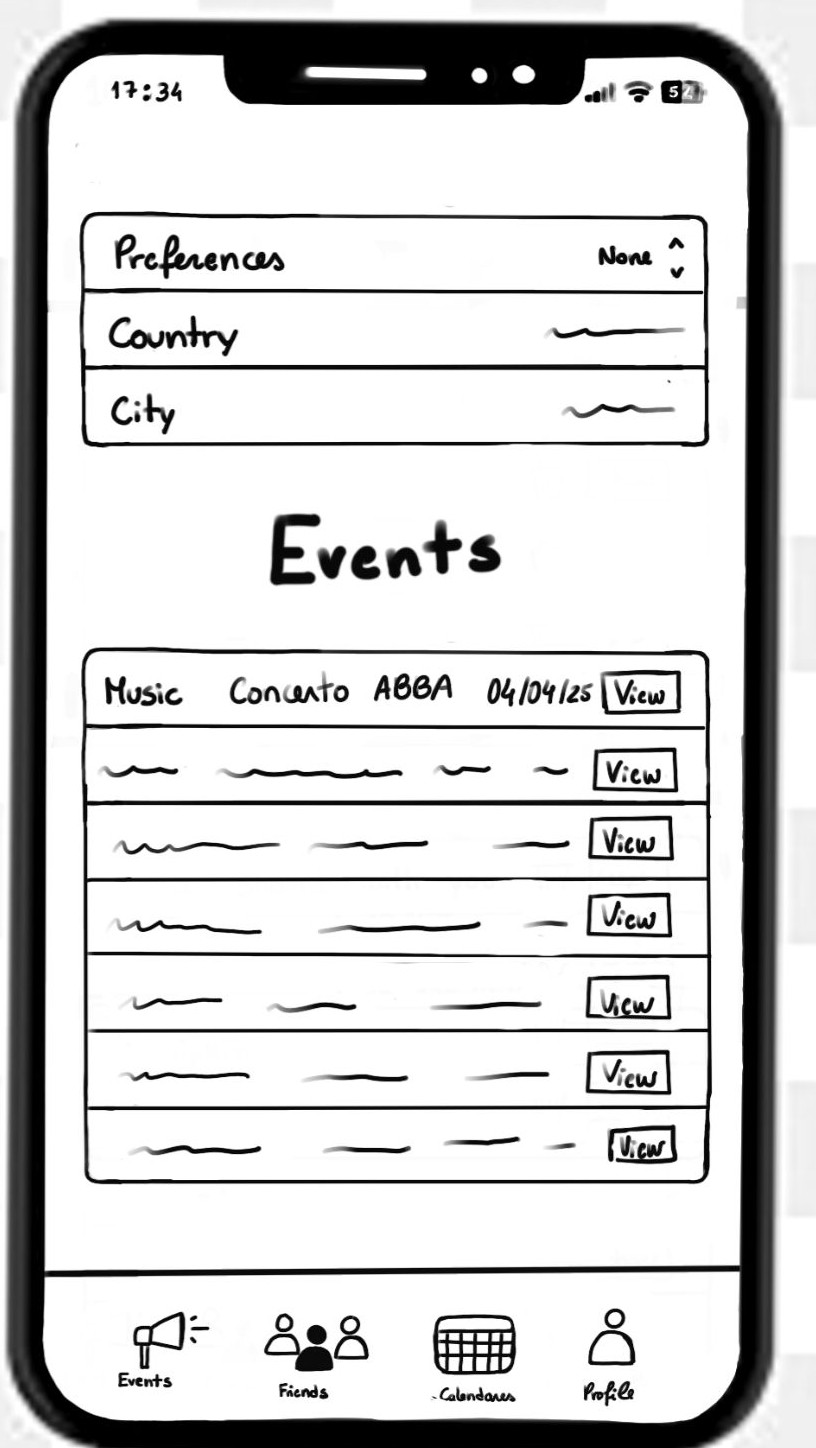 17:34
54
Preferences None
Country
City
Events
Music Concerto ABBA 04/04/25 View
View
View
View
View
View
View
Events Friends Calendares Profile